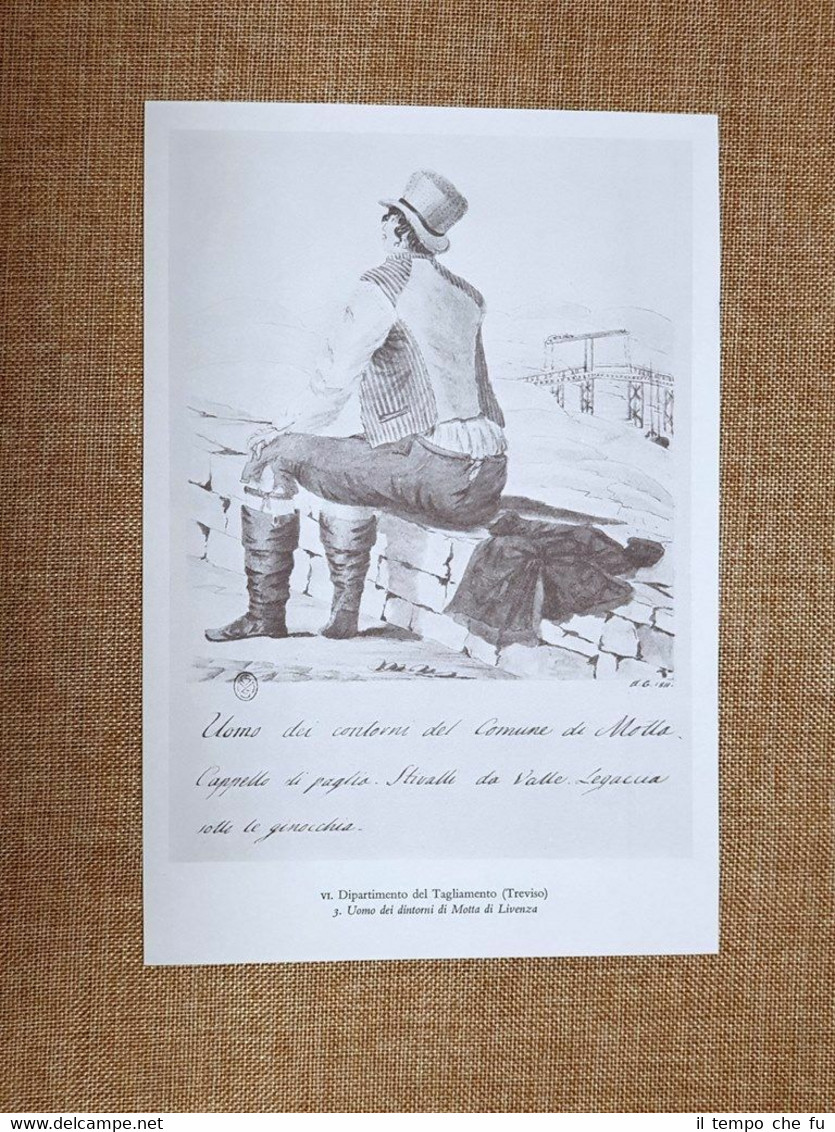 A. G. 1811.
Uomo dei contorni del Comune di Motta.
Cappello di paglia. Stivalli da Valle. Legaccia
sotto le ginocchia.
VI. Dipartimento del Tagliamento (Treviso)
3. Uomo dei dintorni di Motta di Livenza
www.delcampe.net
il tempo che fu